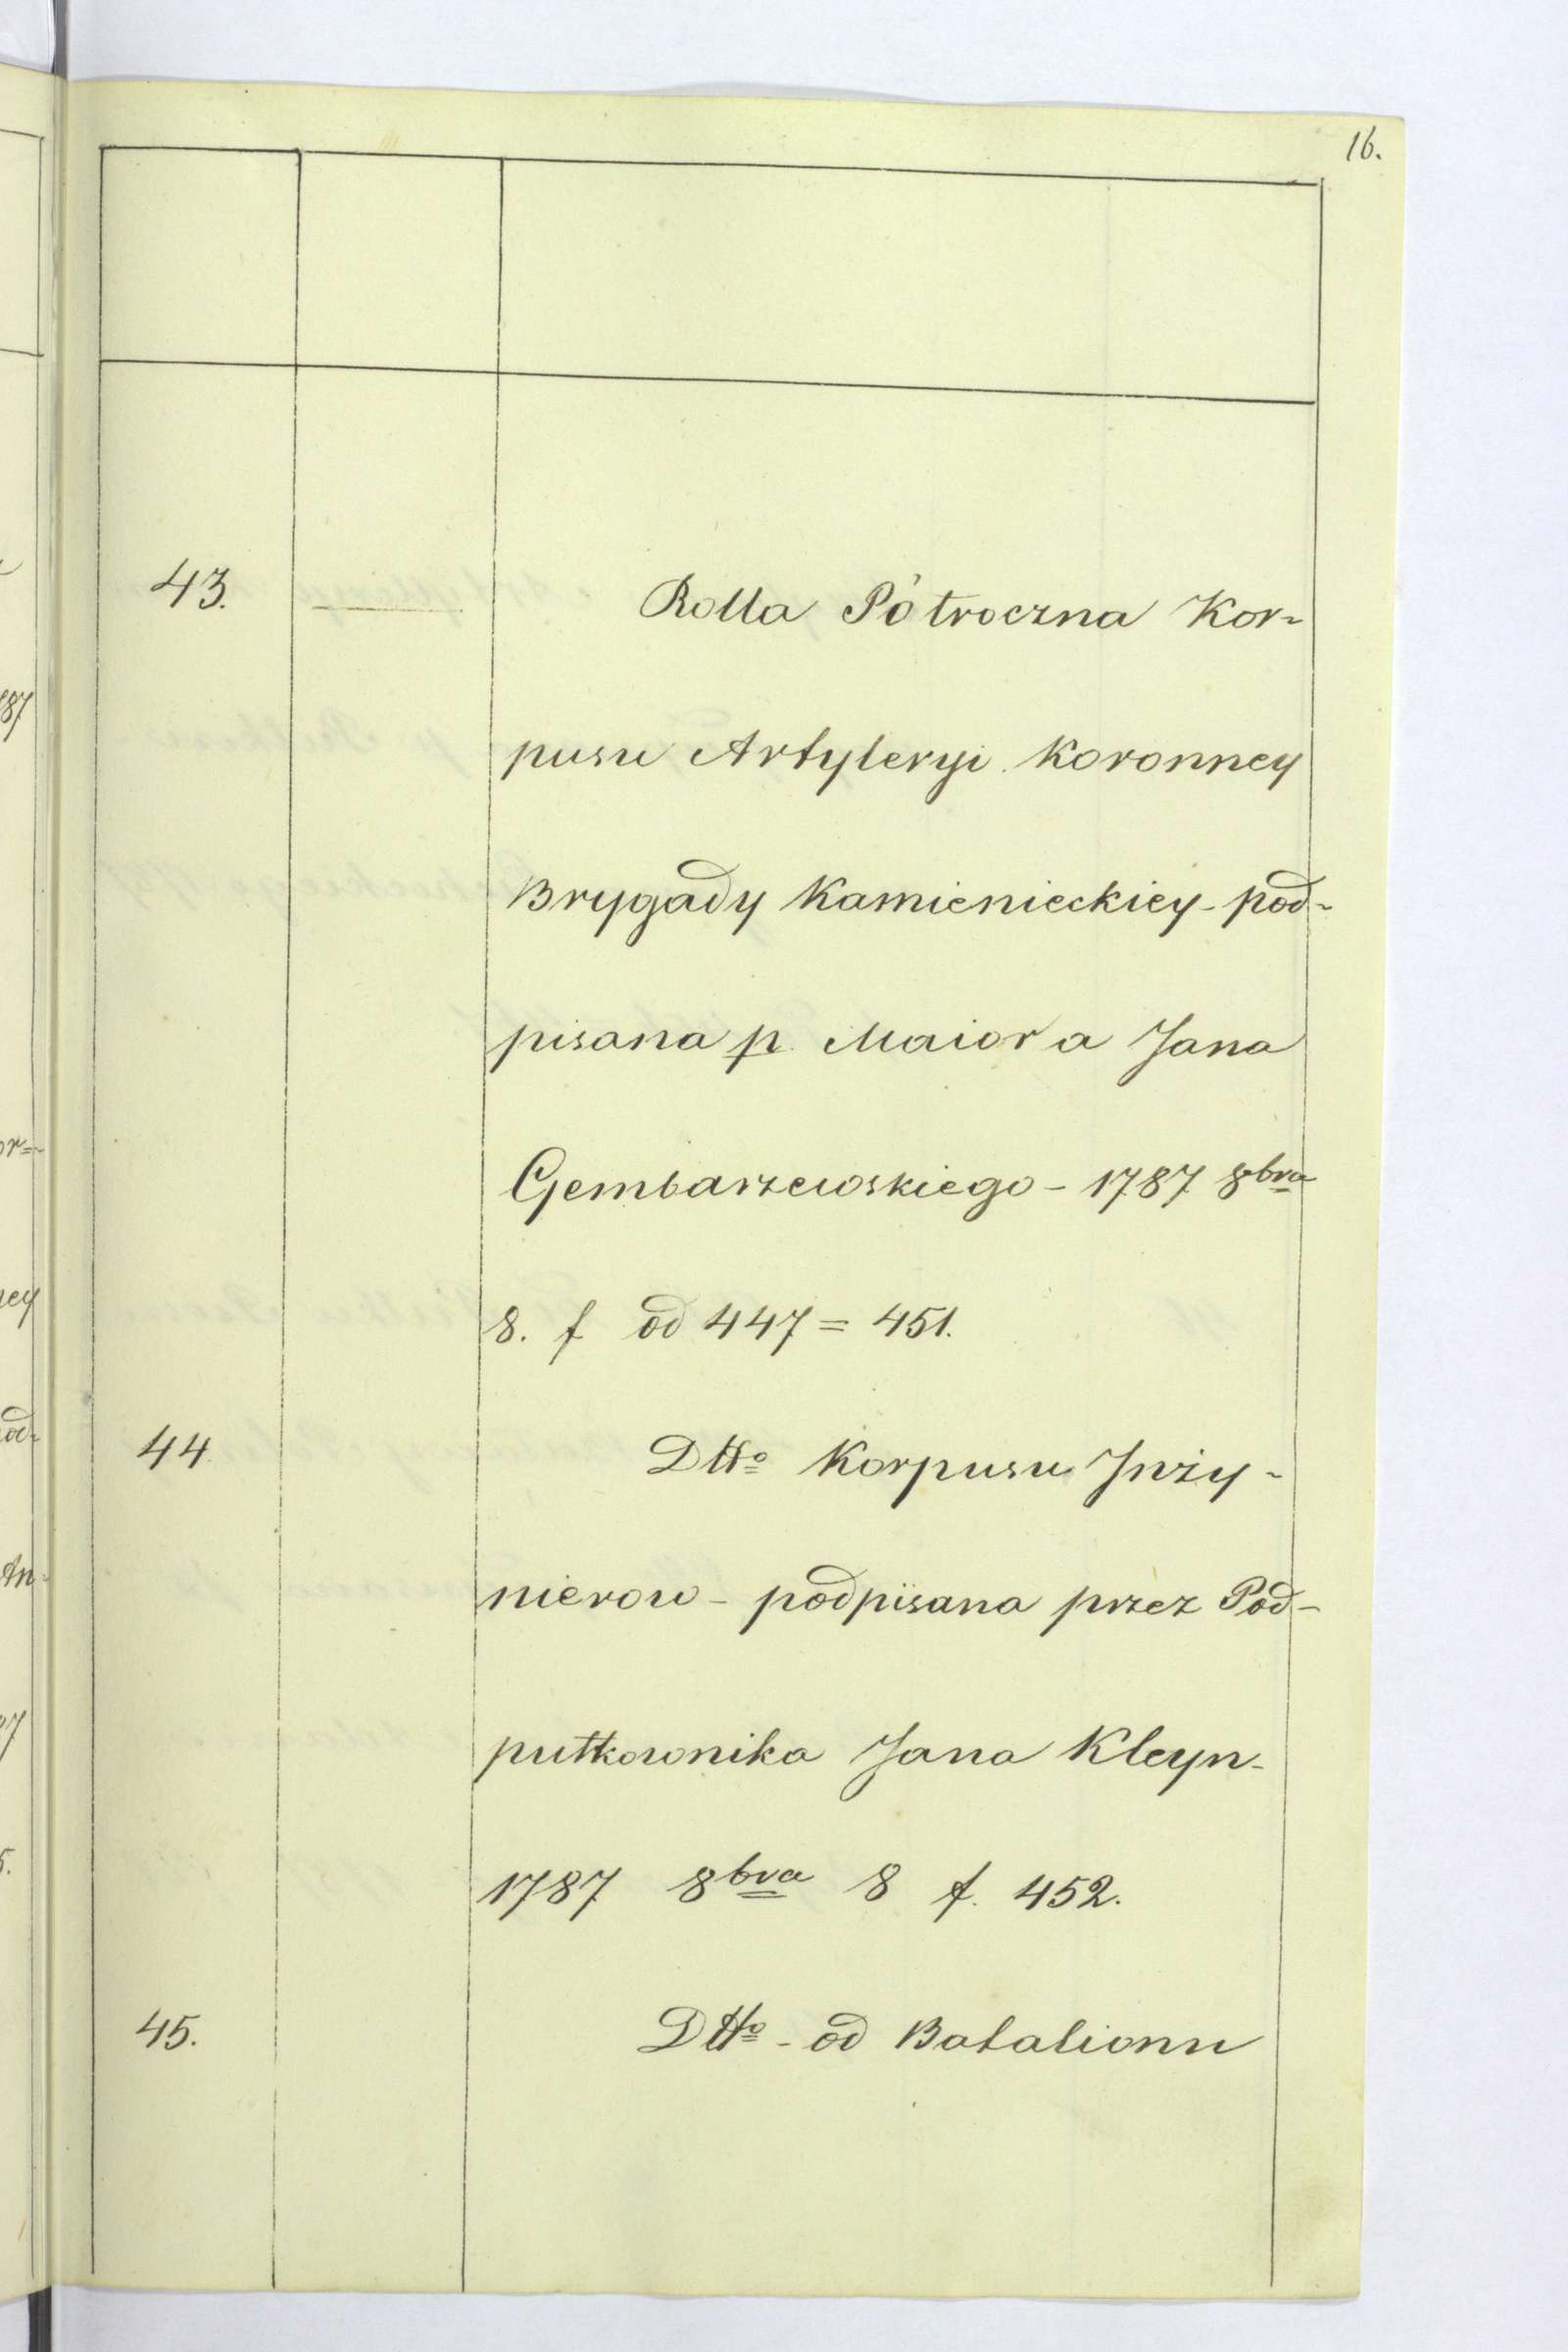 16.
43. Rolla Pòtroczna Kor-
pusu Artyleryi Koronney
Brygady Kamienieckiey - pod-
pisana p. Maiora Jana
Gembarzewskiego - 1787 8bra
8. f od 447 = 451.
44 Dtto Korpusu Jnży-
nierow - podpisana przez Pod-
pułkownika Jana Kleyn -
1787 8bra 8 f. 452.
45. Dtto - od Batalionu